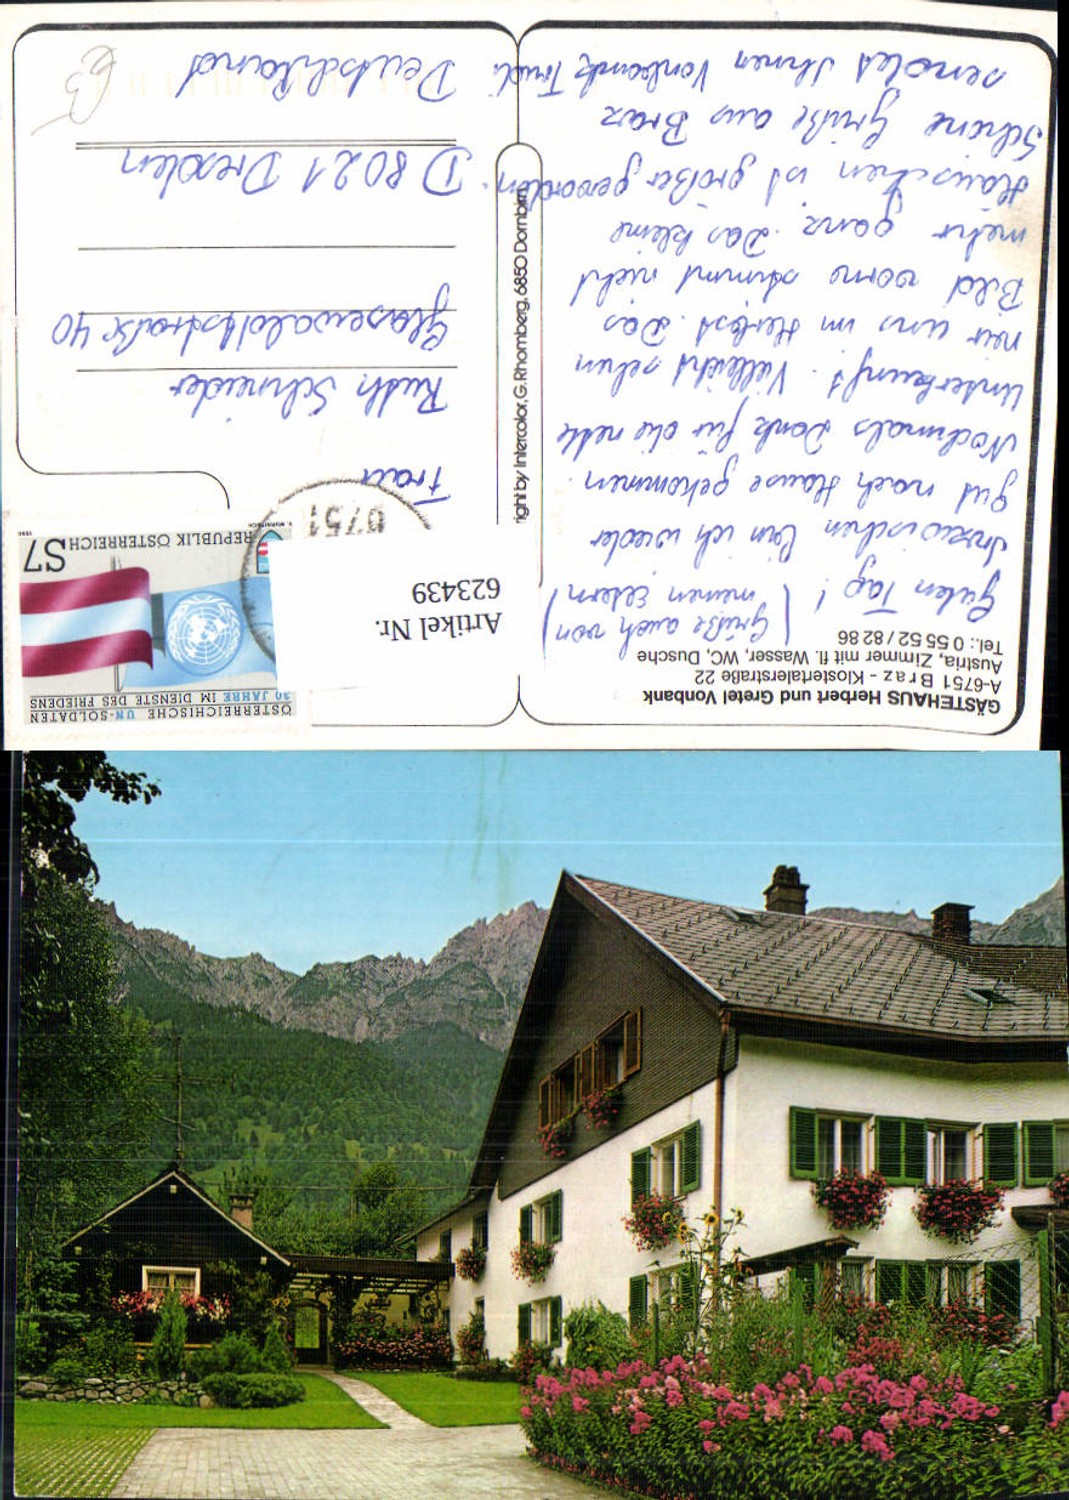 GÄSTEHAUS Herbert und Gretel Vonbank
A-6751 Braz - Klostertalerstraße 22
Austria, Zimmer mit fl. Wasser, WC, Dusche
Tel.: 0 55 52 / 82 86
Guten Tag! (Grüße auch von
meinen Eltern)
Inzwischen bin ich wieder
gut nach Hause gekommen.
Nochmals Dank für die nette
Unterkunft. Vielleicht sehen
wir uns im Herbst. Das
Bild vorne stimmt nicht
mehr ganz. Das kleine
Häuschen ist größer geworden.
Schöne Grüße aus Braz
sendet Ihnen Vonbank Trudi
right by Intercolor, G. Rhomberg, 6850 Dornbirn
ÖSTERREICHISCHE UN-SOLDATEN
30 JAHRE IM DIENSTE DES FRIEDENS
REPUBLIK ÖSTERREICH S7
1990
6751
Artikel Nr.
623439
Frau
Ruth Schneider
Glasewaldtstraße 40
D 8021 Dresden
Deutschland